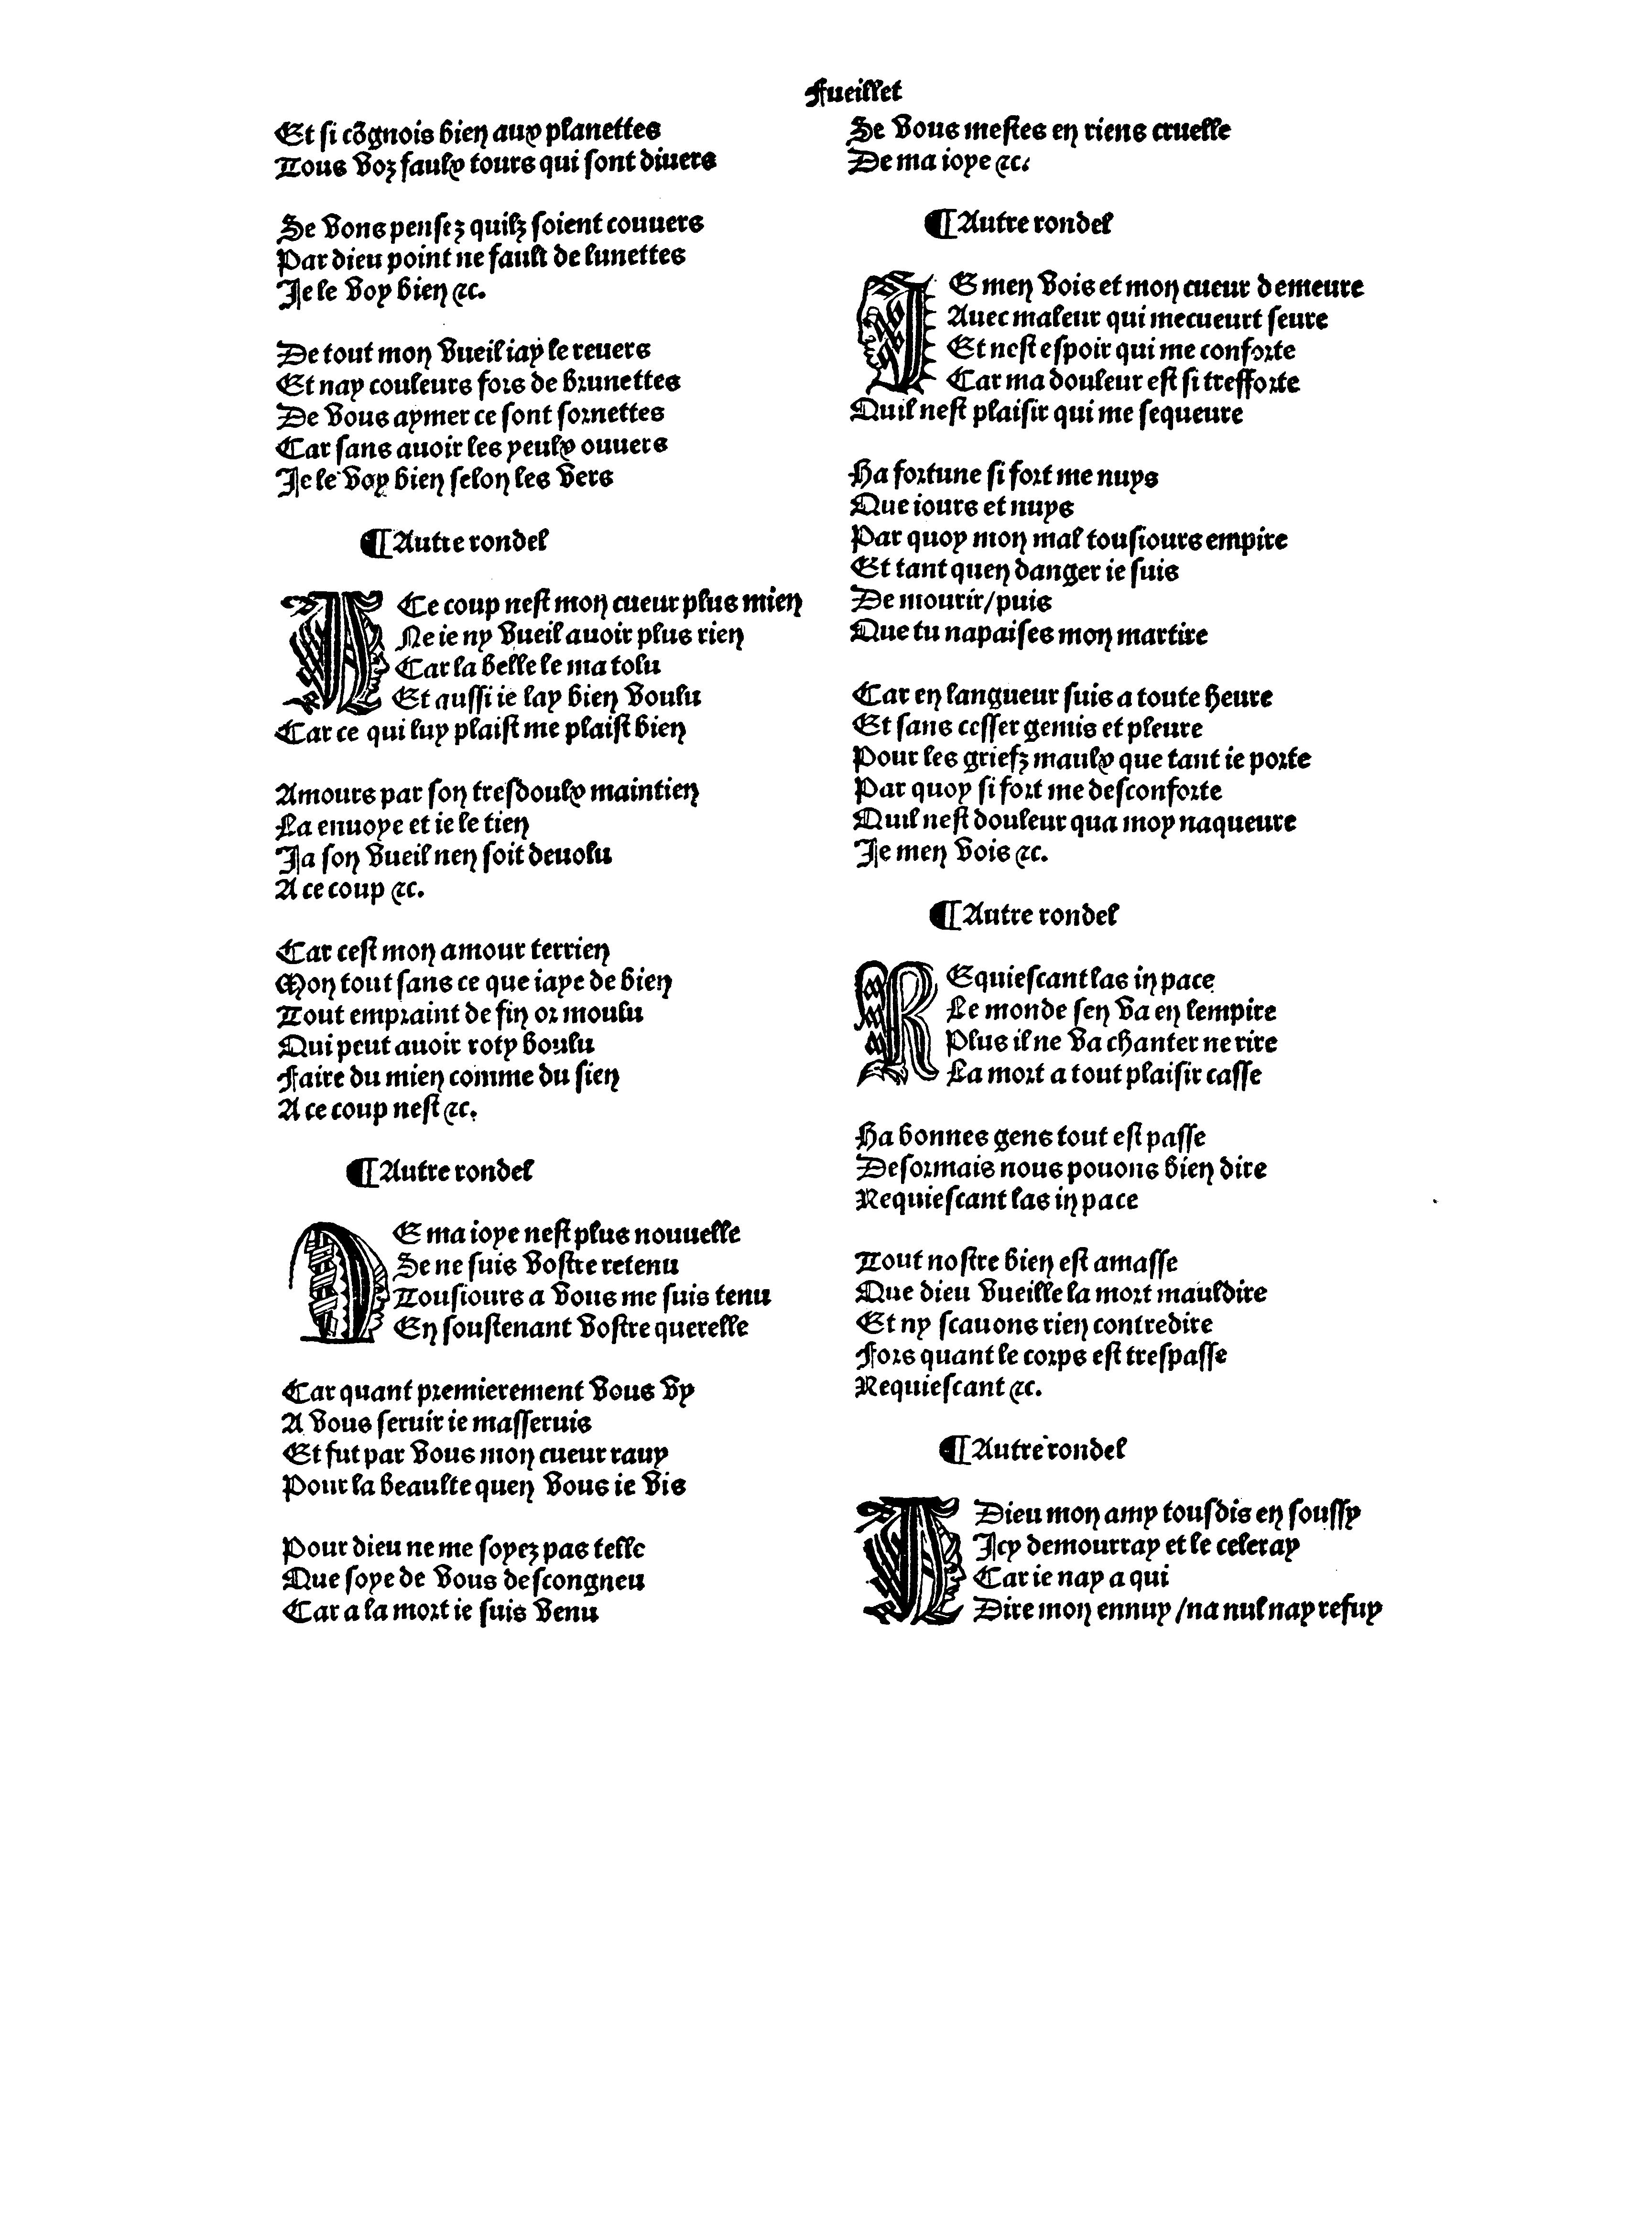 Fueillet
Et si cõgnois bien aux planettes
Tous voz faulx tours qui sont divers
Se vons pensez quilz soient couuers
Par dieu point ne fault de lunettes
Je le voy bien &c.
De tout mon vueil iay le reuers
Et nay couleurs fors de brunettes
De vous aymer ce sont sornettes
Car sans auoir les yeulx ouuers
Je le voy bien selon les vers
¶ Autre rondel
A Ce coup nest mon cueur plus mien
Ne ie ny vueil auoir plus rien
Car la belle le ma tolu
Et aussi ie lay bien voulu
Car ce qui luy plaist me plaist bien
Amours par son tresdoulx maintien
La enuoye et ie le tien
Ja son vueil nen soit deuolu
A ce coup &c.
Car cest mon amour terrien
Mon tout sans ce que iaye de bien
Tout empraint de fin or moulu
Qui peut auoir roty boulu
Faire du mien comme du sien
A ce coup nest &c.
¶ Autre rondel
DE ma ioye nest plus nouuelle
Se ne suis vostre retenu
Tousiours a vous me suis tenu
En soustenant vostre querelle
Car quant premierement vous vy
A vous seruir ie masseruis
Et fut par vous mon cueur rauy
Pour la beaulte quen vous ie vis
Pour dieu ne me soyez pas telle
Que soye de vous descongneu
Car a la mort ie suis venu
Se vous mestes en riens cruelle
De ma ioye &c.
¶ Autre rondel
JE men vois et mon cueur demeure
Auec maleur qui mecueurt seure
Et nest espoir qui me conforte
Car ma douleur est si tresforte
Quil nest plaisir qui me sequeure
Ha fortune si fort me nuys
Que iours et nuys
Par quoy mon mal tousiours empire
Et tant quen danger ie suis
De mourir/puis
Que tu napaises mon martire
Car en langueur suis a toute heure
Et sans cesser gemis et pleure
Pour les griefz maulx que tant ie porte
Par quoy si fort me desconforte
Quil nest douleur qua moy naqueure
Je men vois &c.
¶ Autre rondel
REquiescant las in pace
Le monde sen va en lempire
Plus il ne va chanter ne rire
La mort a tout plaisir casse
Ha bonnes gens tout est passe
Desormais nous pouons bien dire
Requiescant las in pace
Tout nostre bien est amasse
Que dieu vueille la mort mauldire
Et ny scauons rien contredire
Fors quant le corps est trespasse
Requiescant &c.
¶ Autre rondel
A Dieu mon amy tousdis en soussy
Icy demourray et le celeray
Car ie nay a qui
Dire mon ennuy /na nul nay refuy